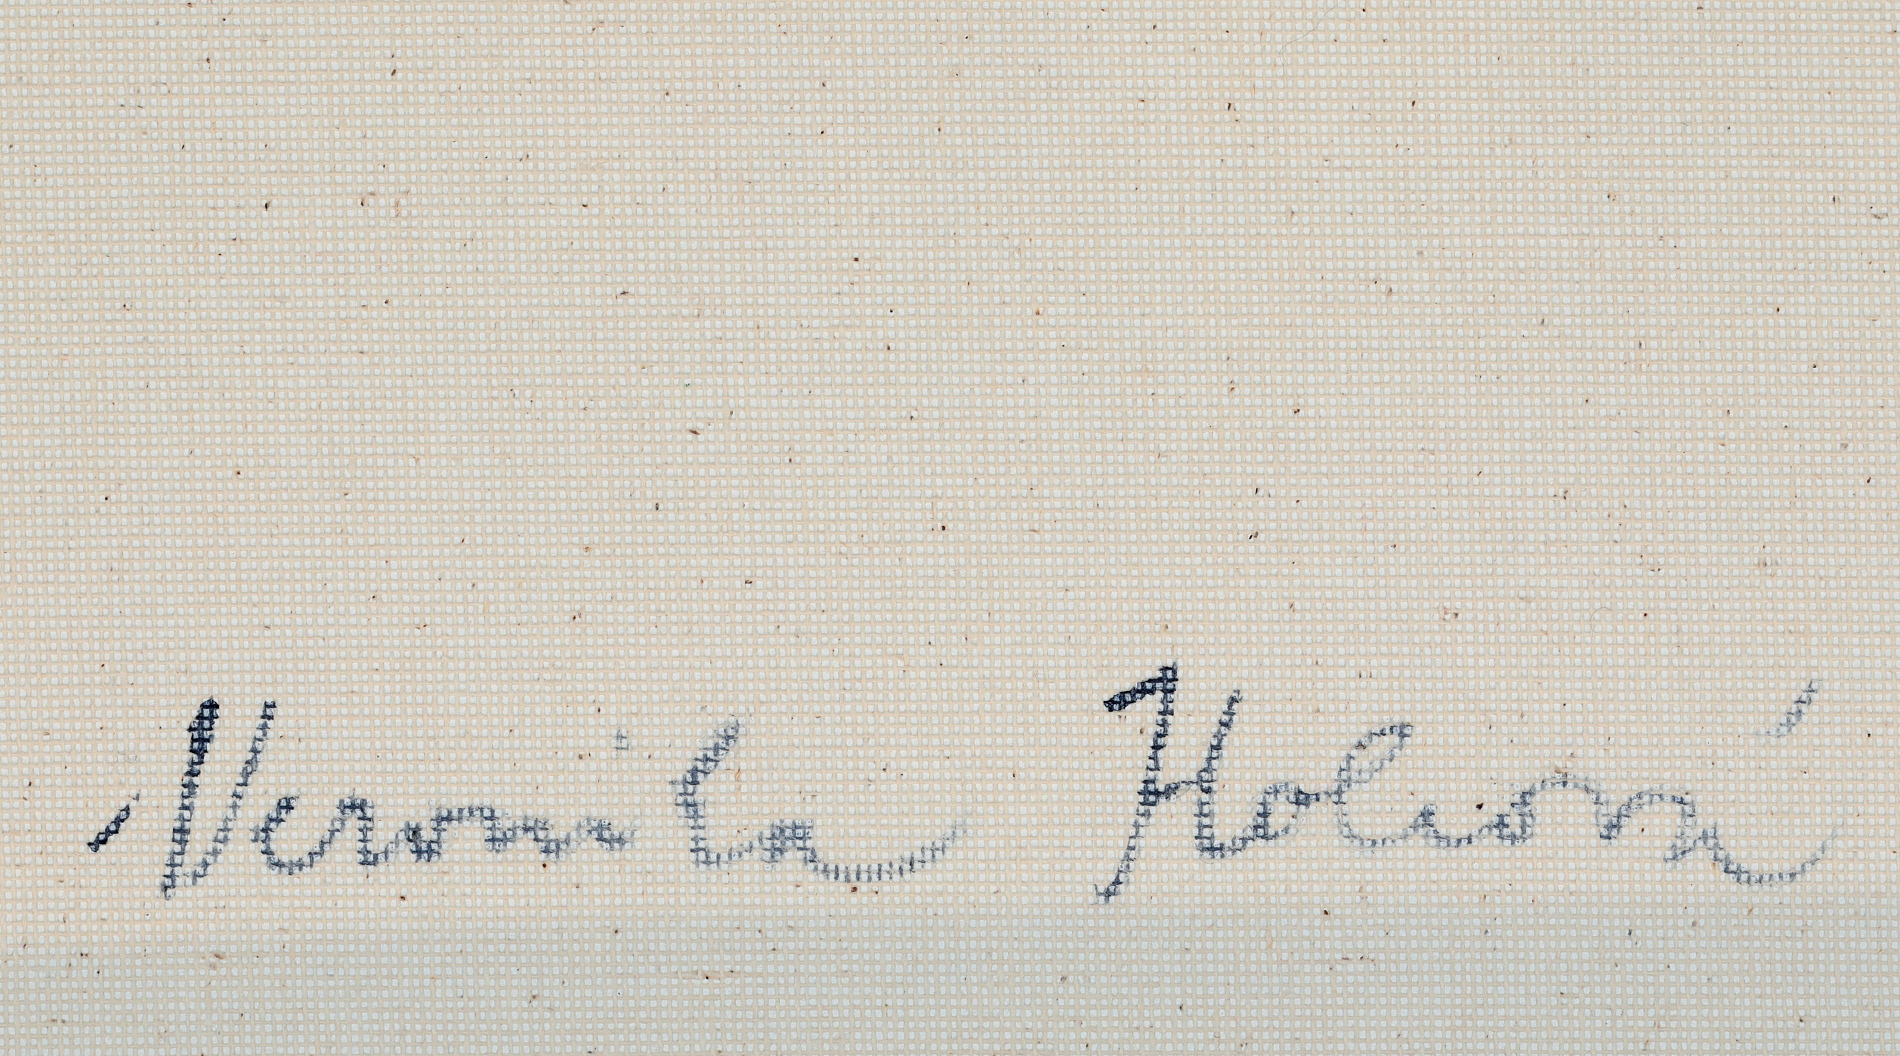 Veronika Holcová